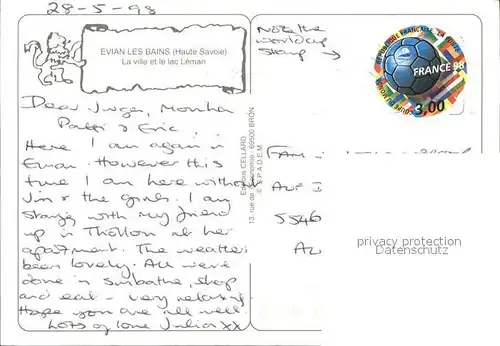 28-5-98
EVIAN LES BAINS (Haute Savoie)
La ville et le lac Léman
Dear Monika
Patti & Eric,
Here I am again in
Evian. However this
time I am here without
Jim & the girls. I am
staying with my friend
up in Thollon at her
apartment. The weather
been lovely. All we've
done is sunbathe, shop
and eat - very relaxing
Hope you are all well.
Lots of love Julia xx
Editions CELLARD
69500 BRON
© S.P.A.D.E.M.
Note the
world cup
stamp →
REPUBLIQUE FRANÇAISE LA POSTE
FRANCE 98
COUPE DU MONDE
3,00
FAM
5546
privacy protection
Datenschutz